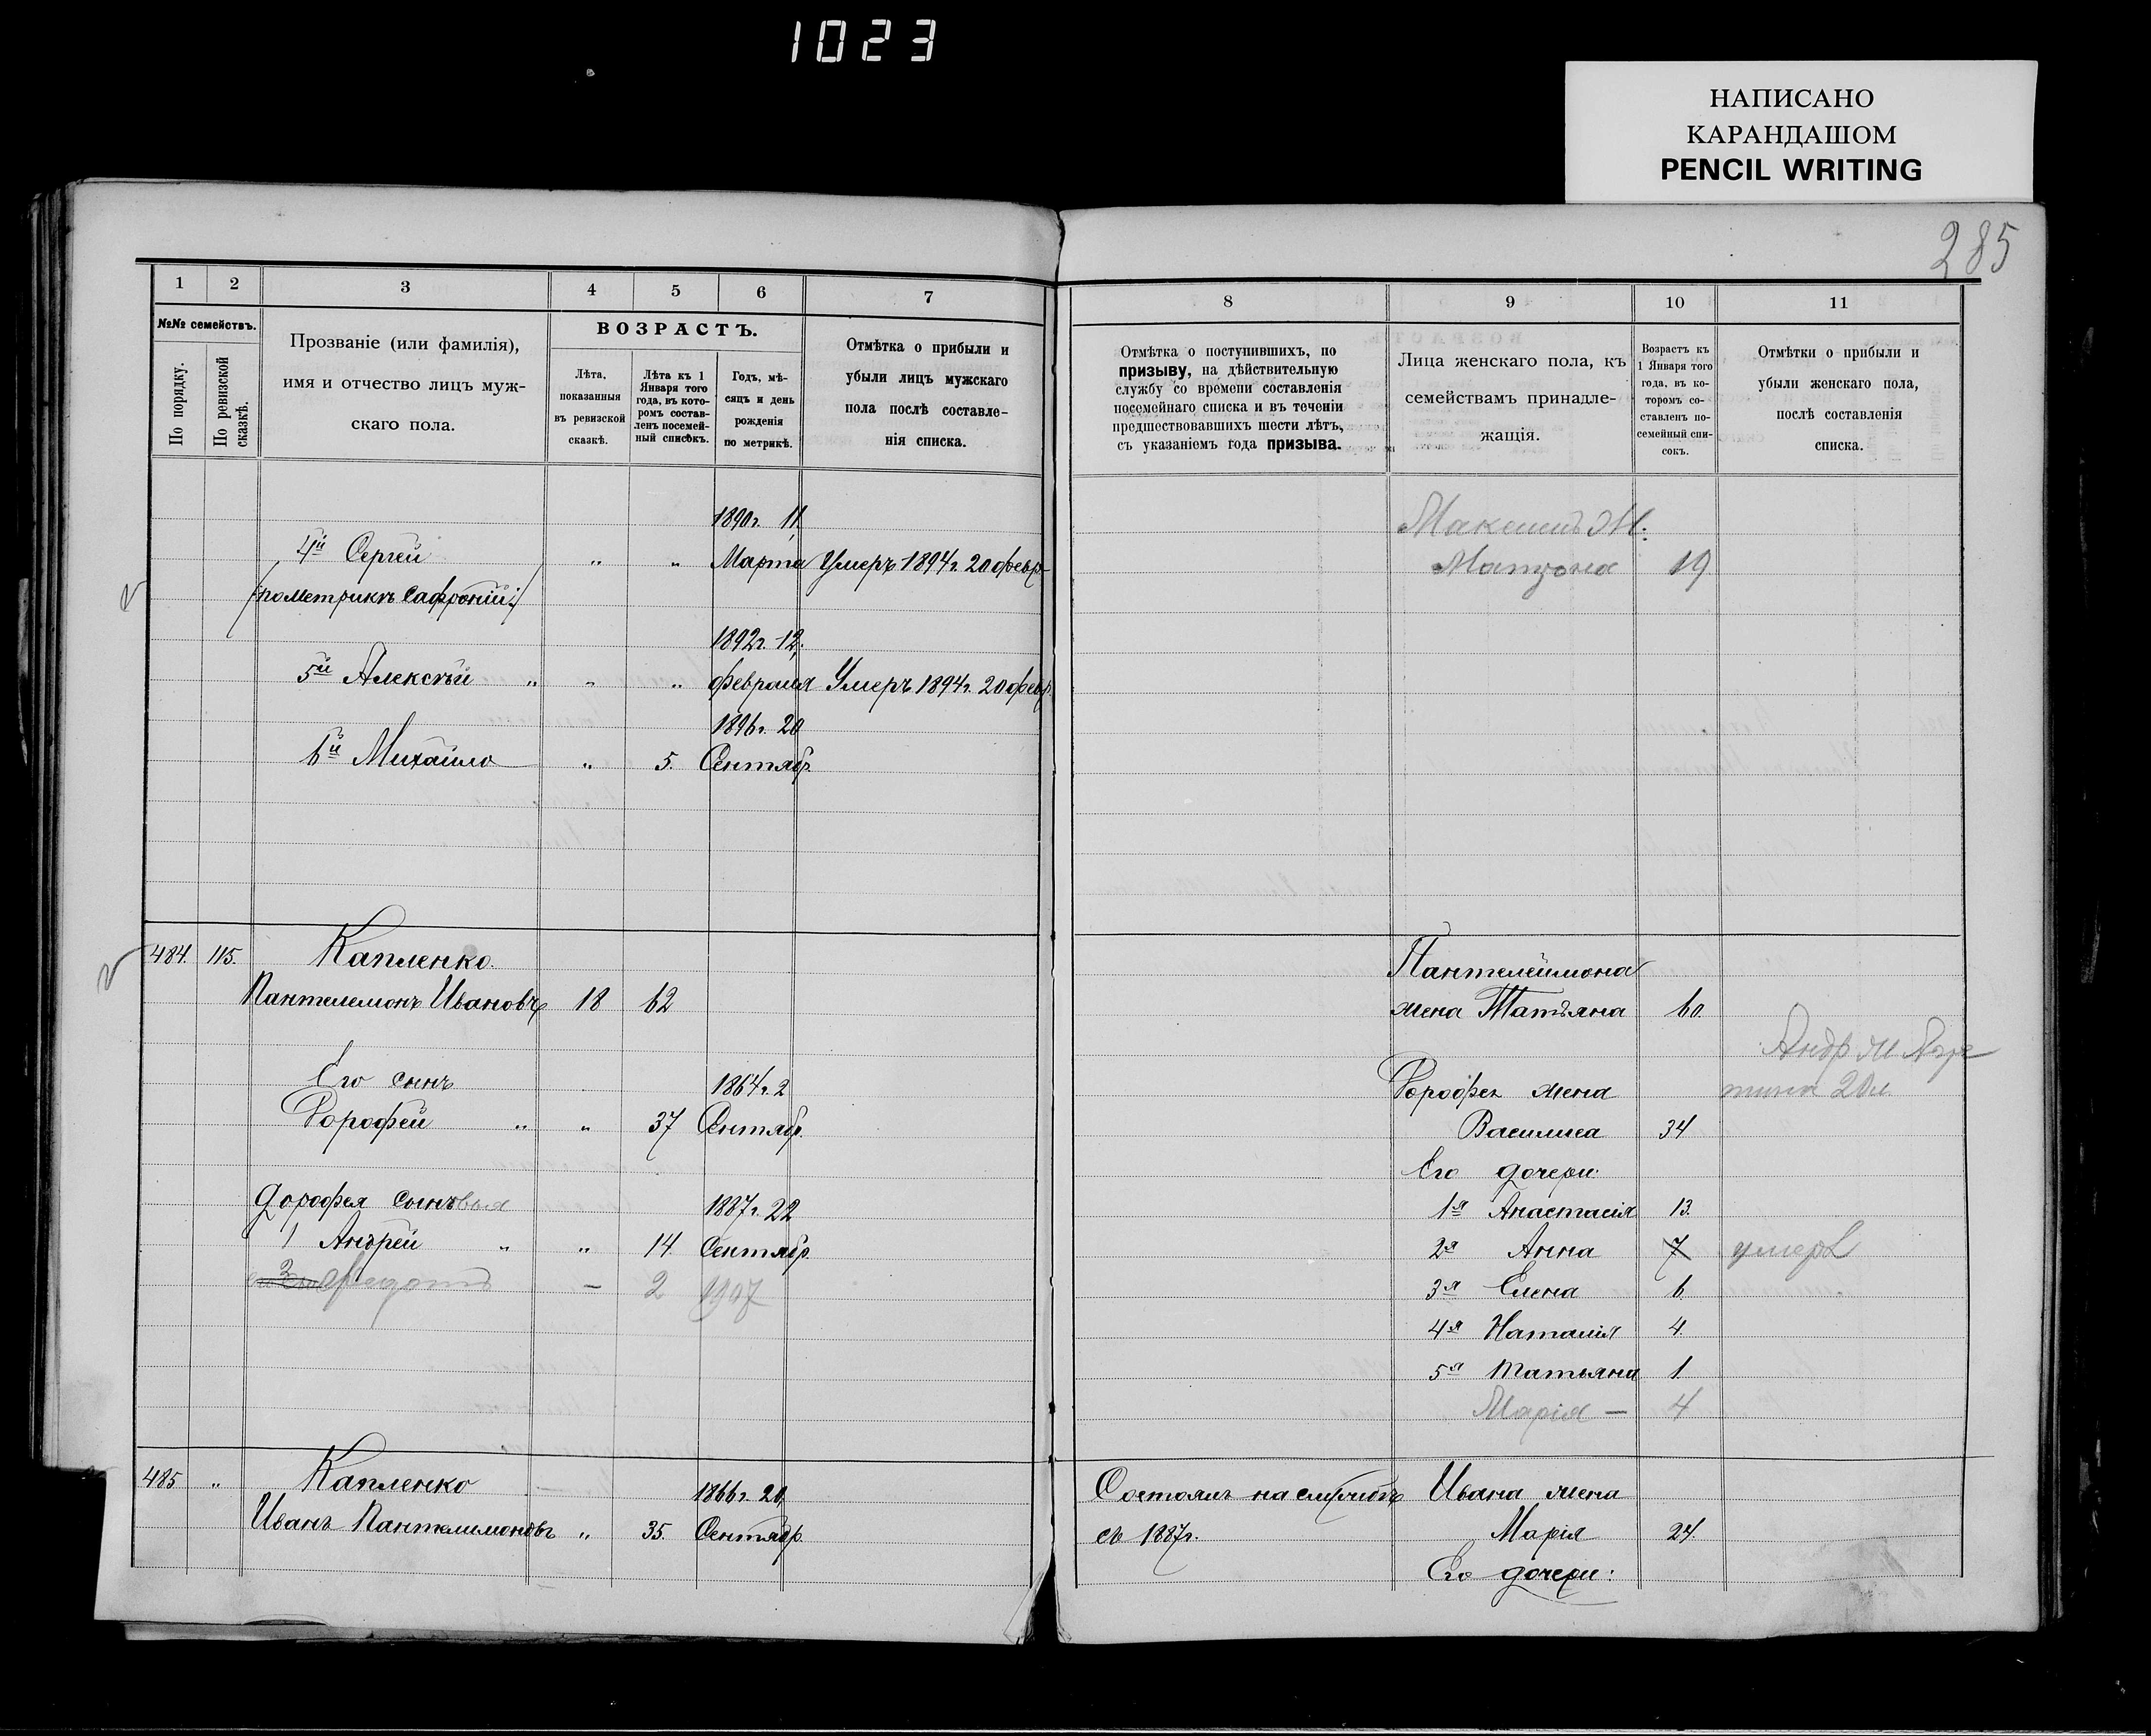 1023
НАПИСАНО
КАРАНДАШОМ
PENCIL WRITING
285
1 2 3 4 5 6 7
№№ семействъ.
По порядку.
По ревизской сказкѣ.
Прозваніе (или фамилія),
имя и отчество лицъ муж-
скаго пола.
ВОЗРАСТЪ.
Лѣта,
показанныя
въ ревизской
сказкѣ.
Лѣта къ 1
Января того
года, въ кото-
ромъ состав-
ленъ посемей-
ный списокъ.
Годъ, мѣ-
сяцъ и день
рожденія
по метрикѣ.
Отмѣтка о прибыли и
убыли лицъ мужскаго
пола послѣ составле-
нія списка.
1890г. 11
4й Сергей " " Марта Умеръ 1894г. 20 февр.
по метрикѣ Сафроній
1892г. 12
5й Алексѣй " " " февраля Умеръ 1894г. 20 февр.
1896г. 20
6й Михаило " 5. Сентябр.
484. 115. Капленко.
Пантелемонъ Ивановъ 18 62
Его сынъ 1864г. 2
Дорофей " " 37 Сентябр.
Дорофея сыновья 1887г. 22
1 Андрей " " 14 Сентябр.
Федотъ — 2 1907
485 " Капленко 1866г. 20
Иванъ Пантелимоновъ " 35. Сентябр.
8 9 10 11
Отмѣтка о поступившихъ, по
призыву, на дѣйствительную
службу со времени составленія
посемейнаго списка и въ теченіи
предшествовавшихъ шести лѣтъ,
съ указаніемъ года призыва.
Лица женскаго пола, къ
семействамъ принадле-
жащія.
Возрастъ къ
1 Января того
года, въ ко-
торомъ со-
ставленъ по-
семейный спи-
сокъ.
Отмѣтки о прибыли и
убыли женскаго пола,
послѣ составленія
списка.
19
Пантелеймона
жена Татьяна 60.
Дорофея жена 20
Василиса 34
Его дочери:
1я Анастасія 13.
2я Анна 7 умерл
3я Елена 6
4я Наталія 4.
5я Татьяна 1.
Марія — 4
Состоялъ на службѣ Ивана жена
съ 1887г. Марія 24.
Его дочери: